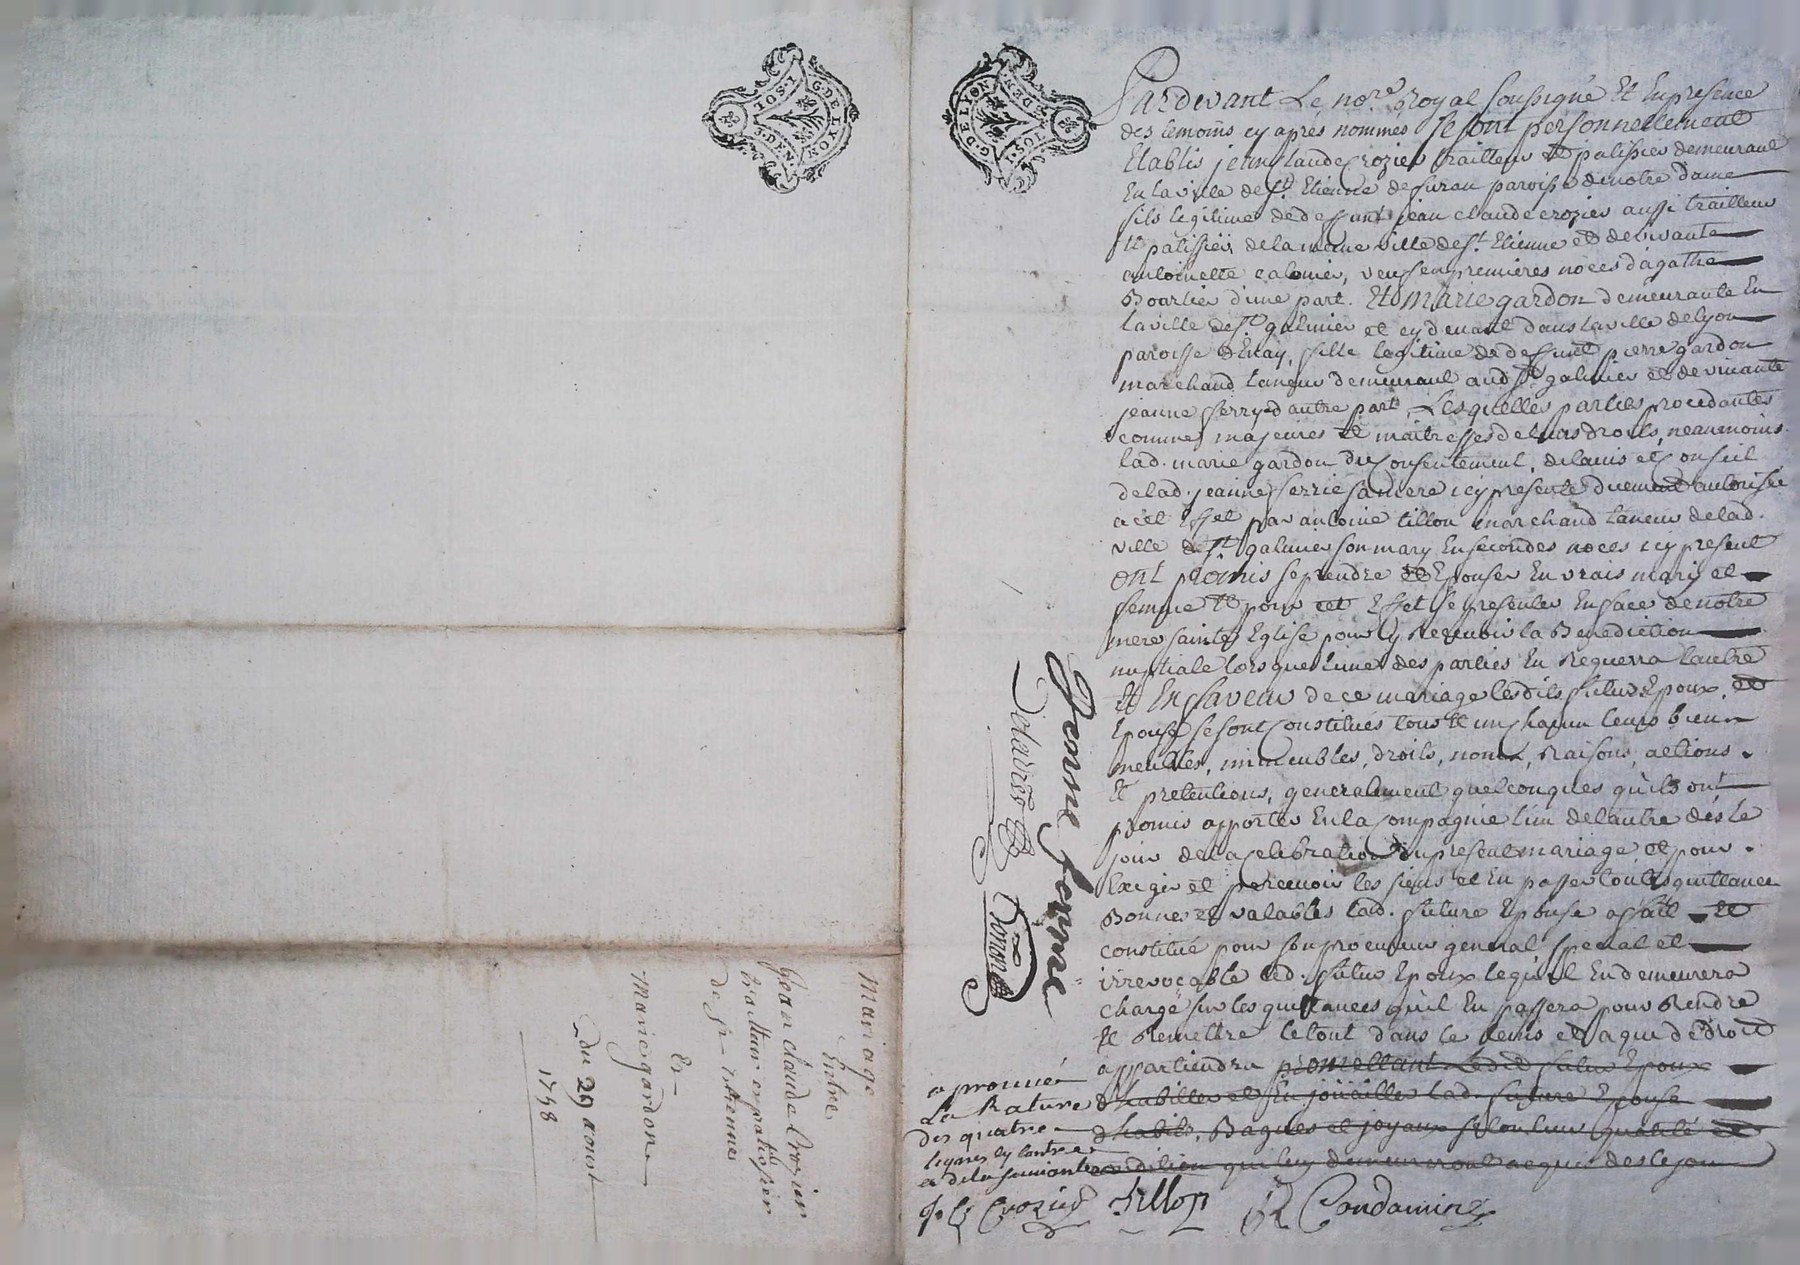 G.DE LYON
I.SOL
8.DEN.
G.DE LYON
I.SOL
8.DEN
Pardevant Le no.re Royal soussigné Et En presence
des temoins cy après nommés se sont personnellement
Etablis jean Claude Crozier traitteur et patissier demeurant
En la ville de St. Etienne de furan paroisse de notre dame
fils legitime de deffunt jean claude crozier aussi traitteur
et patissier de la meme ville de St. Etienne et de vivante
antoinette calonier, veuf en premieres noces d'agathe
Boarlier d'une part. Et marie gardon demeurante En
la ville de St. galmier et cy devant dans la ville de lyon
paroisse d'Enay, fille legitime de deffunt pierre gardon
marchand taneur demeurant aud. St. galmier et de vivante
jeanne ferry d'autre part, Lesquelles parties procedantes
comme majeures et maitresses de leurs droits, neanmoins
lad. marie gardon du Consentement, de l'avis et Conseil
de lad. jeanne ferrie sa mere icy presente duement autorisée
a cet Effet par antoine tillon marchand taneur de lad.
ville de St. galmier son mary En secondes noces icy present
ont promis se prendre et Epouser En vrais mary et
femme Et pour cet Effet se presenter En face de notre
mere sainte Eglise pour y Recevoir la Benediction
nuptiale lors que l'une des parties En Requerra l'autre
Et En faveur de ce mariage lesdits futurs Epoux, et
Epouse se sont Constitués tous et un chacun leurs biens
meubles, immeubles, droits, noms, Raisons, actions
Et pretentions, generalement quelconques qu'ils ont
promis apporter En la Compagnie l'un de l'autre dès le
jour de la Celebration du present mariage et pour
Exiger et percevoir les siens et En passer toutes quittances
Bonnes et valables lad. future Epouse a fait et
constitué pour son procureur general special et
irrevocable led. futur Epoux lequel En demeurera
chargé sur les quittances qu'il En passera pour Rendre
et Remettre le tout dans le tems et a qui de droit
appartiendra promettant Ledit futur Epoux
d'habiller et En joüailler lad. future Epouse
d'habits, Bagues et joyaux selon leur qualité et
condition qui luy demeureront acquis des le jour
aprouvée
La Rature
des quatre
lignes cy contre
et de la suivante
J. C. Crozier Tillon Condamine
jeanne ferrie
Mariage
Entre
Jean claude Crozier
traitteur et patissier
de St. etienne
Et
Marie gardon
du 29 aoust
1748